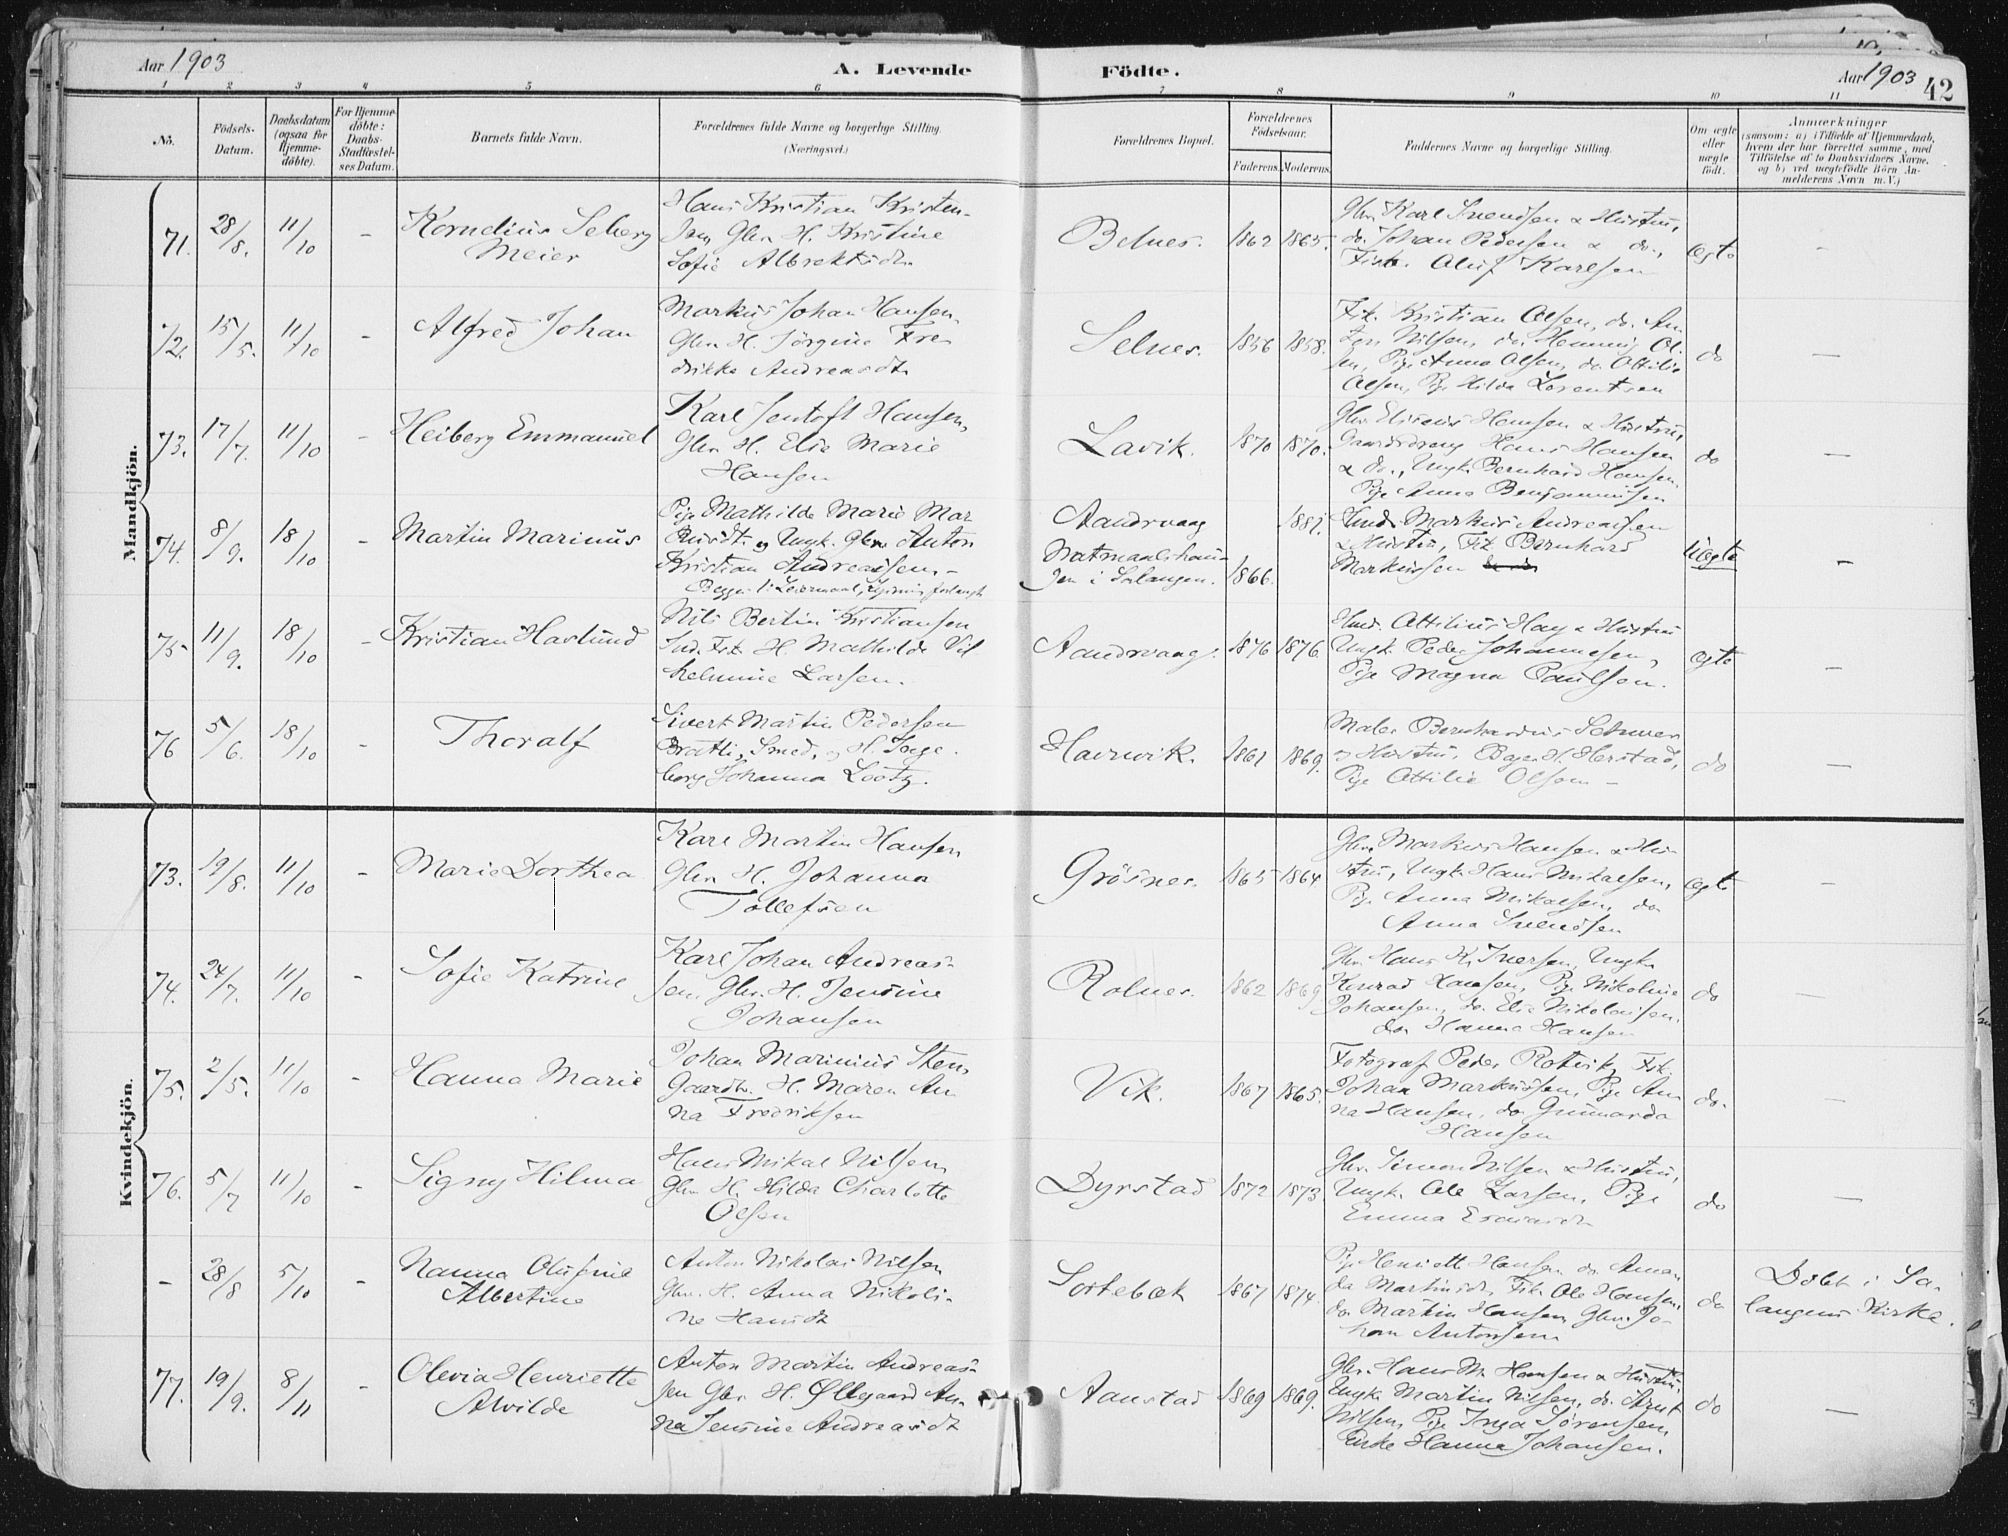 Aar 1903
A. Levende Födte.
Aar 1903
42
1 2 3 4 5 6 7 8 9 10 11
No.
Födsels-
Datum.
Daabsdatum
(ogsaa for
Hjemme-
döbte).
For Hjemme-
döbte:
Daabs-
Stadfæstel-
ses Datum.
Barnets fulde Navn.
Forældrenes fulde Navne og borgerlige Stilling.
(Næringsvei.)
Forældrenes Bopæl.
Forældrenes
Födselsaar.
Faderens. Moderens.
Faddernes Navne og borgerlige Stilling.
Om ægte
eller
uægte
födt.
Anmærkninger
(saasom: a) i Tilfælde af Hjemmedaab,
hvem der har forrettet samme, med
Tilföielse af to Daabsvidners Navne.
og b) ved uægtefödte Börn An-
melderens Navn m. V.)
Mandkjön.
71. 28/8. 11/10 - Kornelius Seberg
Meier
Hans Kristian Kristen-
sen, Gbr. H. Kristine
Sofie Albrektsdtr.
Belnes. 1862 1865.
Gbr. Karl Svendsen & Hustru,
do. Johan Pedersen & do.,
Fisker Oluf Karlsen
ægte -
72. 15/5. 11/10 - Alfred Johan
Markus Johan Hansen,
Gbr. H. Jörgine Fre-
drikke Andreasdtr.
Selnes. 1856 1858.
Fisk. Kristian Olsen, do. An-
ders Nilsen, do. Henning Ol-
sen, Pige Anna Olsen, do. Ottilie
Olsen, Pige Hilda Lorentsen
do -
73. 17/7. 11/10 - Heiberg Emmanuel
Karl Jentoft Hansen,
Gbr. H. Elie Marie
Hansen
Lavik. 1870 1870.
Gbr. Elisæus Hansen & Hustru,
Hans Hansen
& do., Ungk. Bernhard Hansen,
Pige Anna Benjaminsen
do -
74. 8/9. 18/10 - Martin Marinus
Pige Mathilde Marie Mar-
kusdt. og Ungk. Gbr. Anton
Kristian Andreassen.-
Begges 1ste Leiermaal, Lysning forlangt
Aandrvaag
i Salangen.
1866. 1881.
Markus Andreassen
& Hustru, Fisk. Bernhard
Markussen
Uægte -
75 11/9. 18/10 - Kristian Haslund
Nils Bertin Kristiansen
Ind. Fisk. H. Mathilde Vil-
helmine Larsen.
Aandrvaag. 1876 1876.
Ottilius Hay & Hustru
Ungk. Peder Johannesen,
Pige Magna Paulsen.
ægte -
76 5/6. 18/10 - Thoralf
Sivert Martin Pedersen
Bratli, Smed, og H. Inge-
borg Johanna Lootz.
Havnvik. 1861 1869.
Maler Bernhardus
og Hustru, H. Herstad,
Pige Ottilie Olsen -
do -
Kvindekjön.
73. 19/8. 11/10 - Marie Dorthea
Karl Martin Hansen
Gbr. H. Johanna
Tollefsen
Grösnes. 1865 1864
Gbr. Markus Hansen & Hu-
stru, Ungk. Hans Mikalsen,
Pige Anna Mikalsen, do
Anna Svendsen
ægte -
74. 24/7. 11/10 - Sofie Katrine
Karl Johan Andreas-
sen, Gbr. H. Jensine
Johansen
Rolnes. 1862 1869
Gbr. Hans K. Iversen, Ungk.
Konrad Hansen, Pige Nikoline
Johansen, do. Elie Nikolaisen,
do Hanna Hansen
do -
75. 2/5. 11/10 - Hanna Marie
Johan Marinius Sten,
Gaardbr. H. Maren An-
na Fredriksen
Vik. 1867 1865.
Fotograf Peder Rotvik, Fisk.
Johan Markussen, Pige An-
na Hansen, do Gunnarda
Hansen
do. -
76. 5/7 11/10 - Signy Hilma
Hans Mikal Nilsen,
Gbr. H. Hilda Charlotte
Olsen
Dyrstad 1872 1873
Gbr. Simon Nilsen & Hustru,
Ungk. Ole Larsen, Pige
Emma
do -
- 28/8 5/10 - Nanna Olufine
Albertine
Anton Nikolai Nilsen
Gbr. H. Anna Nikoli-
ne Hansdt
Sortebæk 1867 1874.
Pige Henriette Hansen, do Aman-
da Martinsdt, Fisk. Ole Hansen,
do Martin Hansen, Gbr. Jo-
han Antonsen
do
Döbt i Sa-
langens Kirke.
77. 19/9. 8/11 - Olevia Henriette
Alvilde
Anton Martin Andreas-
sen Gbr. H. Øllegaard An-
na Jensine Andreasdt
Aanstad 1869 1869.
Gbr. Hans M. Hansen & Hustru,
Ungk. Martin Nilsen, do. Arnt
Nilsen, Pige Inga Sörensen,
Enke Hanna Johansen.
do -